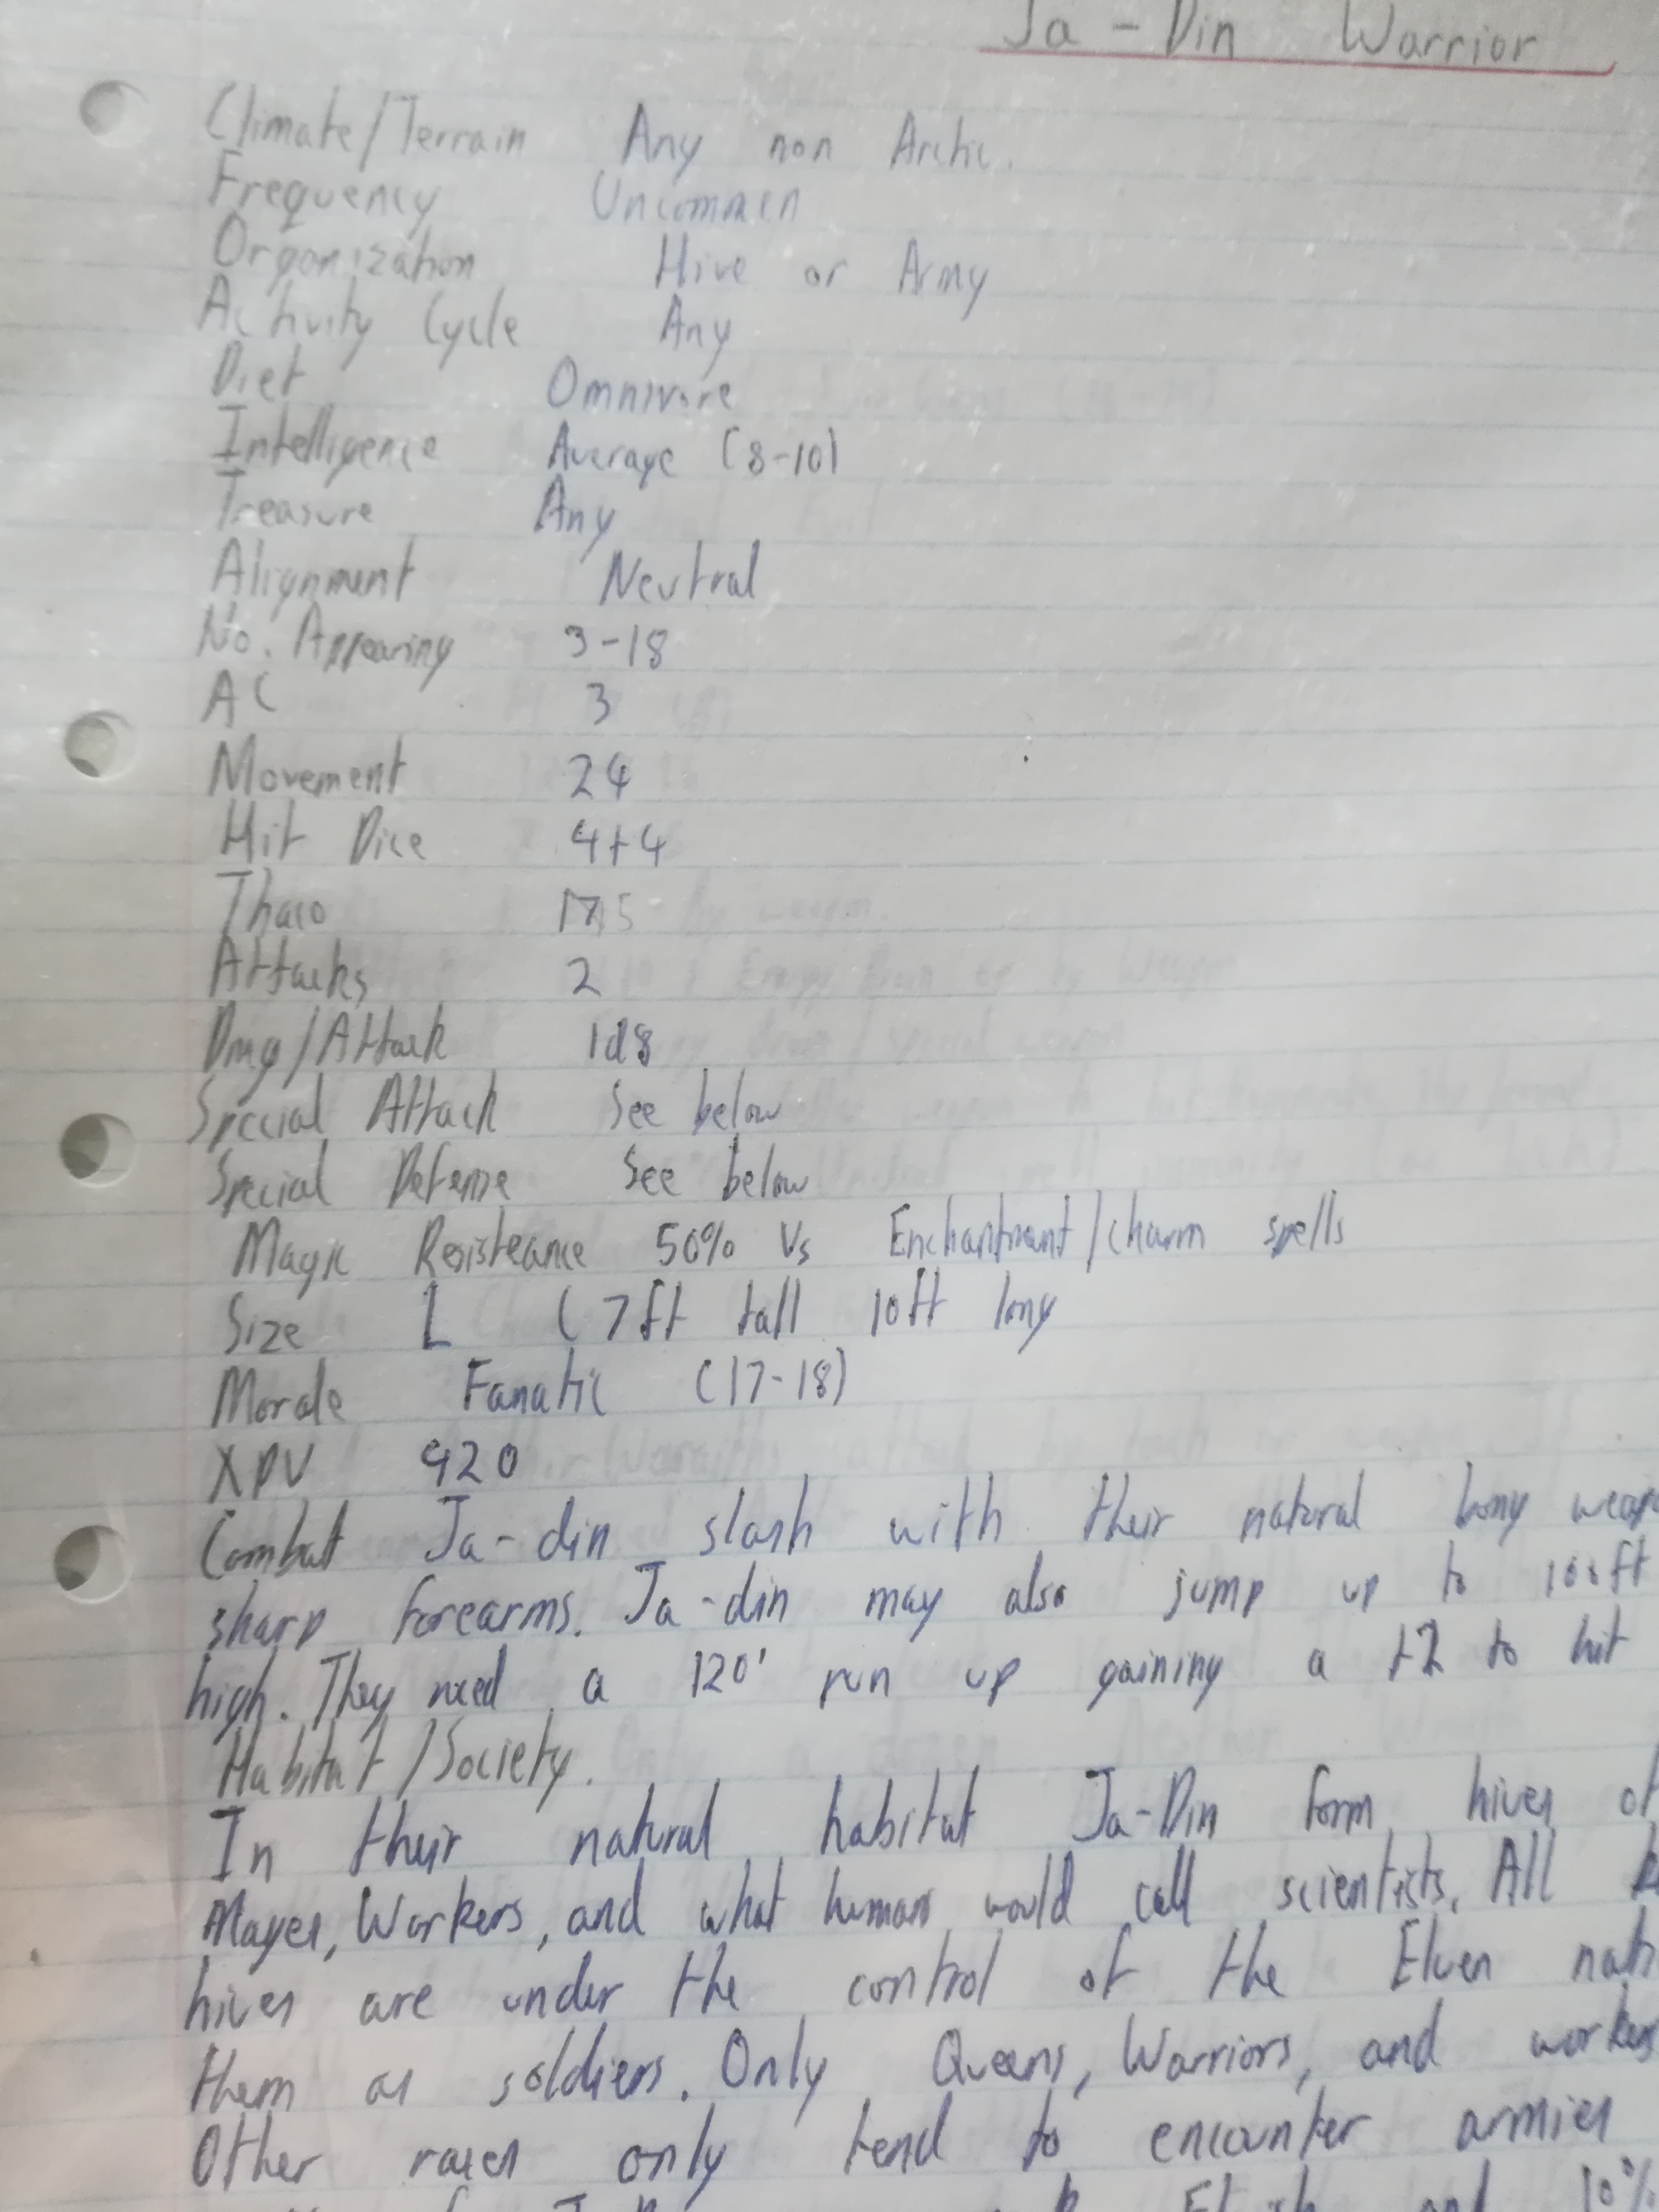 Ja-Din Warrior
Climate/Terrain Any non Arctic.
Frequency Uncommon
Organization Hive or Army
Activity Cycle Any
Diet Omnivore
Intelligence Average (8-10)
Treasure Any
Alignment Neutral
No. Appearing 3-18
AC 3
Movement 24
Hit Dice 4+4
Thaco
Attacks 2
Dmg/Attack 1d8
Special Attack See below
Special Defense See below
Magic Resisteance 50% Vs Enchantment/charm spells
Size L (7ft tall 10ft long
Morale Fanatic (17-18)
XPV 420
Combat Ja-din slash with their natural bony weap
sharp forearms. Ja-din may also jump up to 100ft
high. They need a 120' run up gaining a +2 to hit
Habitat/Society.
In their natural habitat Ja-Din form hives of
Mages, Workers, and what humans would call scientists. All
hives are under the control of the Elven nati
them as soldiers. Only Queens, Warriors, and workers
Other races only tend to encounter armies
and 10%